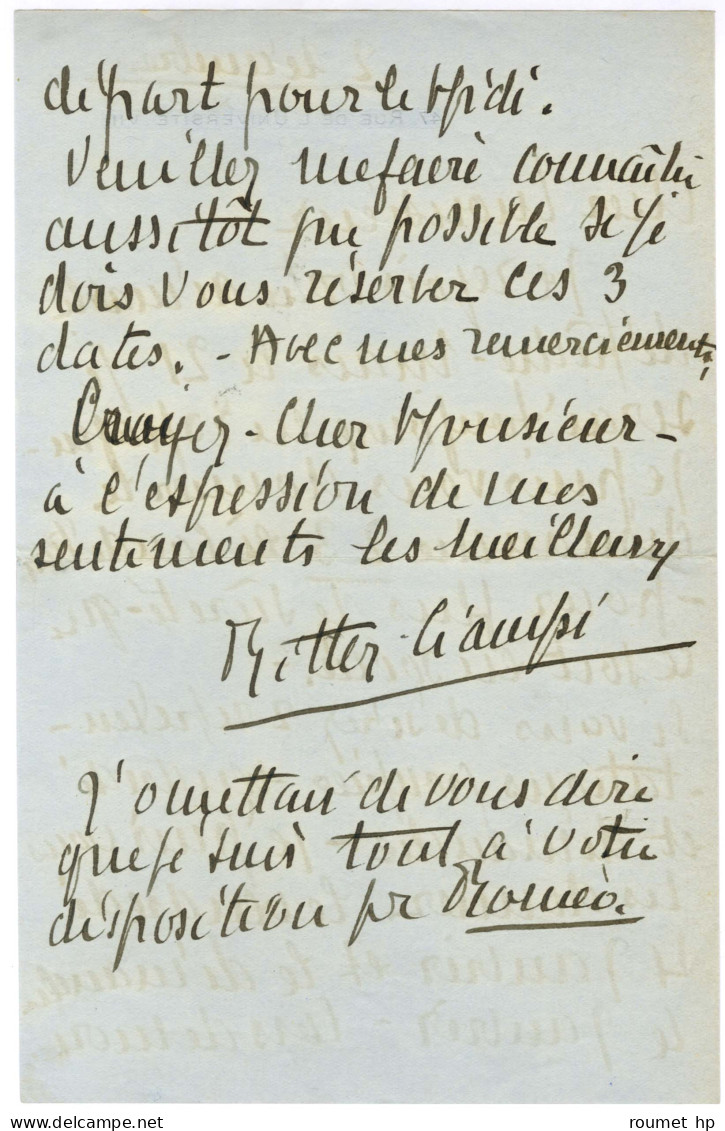 départ pour le Midi.
Veuillez me faire connaître
aussitôt que possible si je
dois vous réserver ces 3
dates. - Avec mes remerciements,
Croyez - Cher Monsieur -
à l'expression de mes
sentiments les meilleurs
Ritter-Ciampi
J'omettais de vous dire
que je suis tout à votre
disposition pr Roméo.
roumet hp